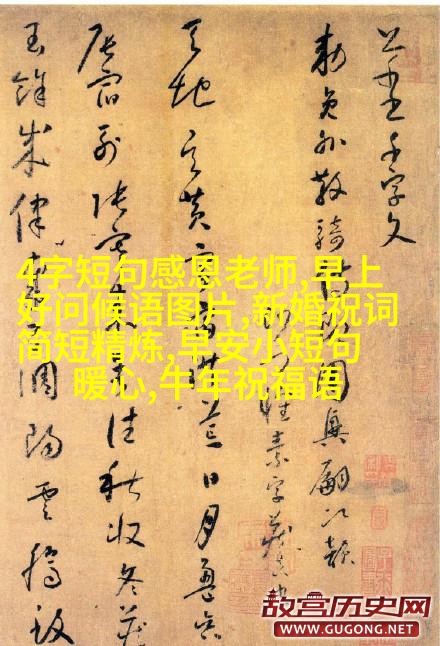 千字文
勅員外散騎侍郎周興嗣次韻
天地玄黃宇宙洪荒日月盈昃
辰宿列張寒來暑往秋收冬藏
餘成律調陽雲騰致
4字短句感恩老师,早上
好问候语图片,新婚祝词
简短精炼,早安小短句
暖心,牛年祝福语
故宫历史网
WWW.GUGONG.NET